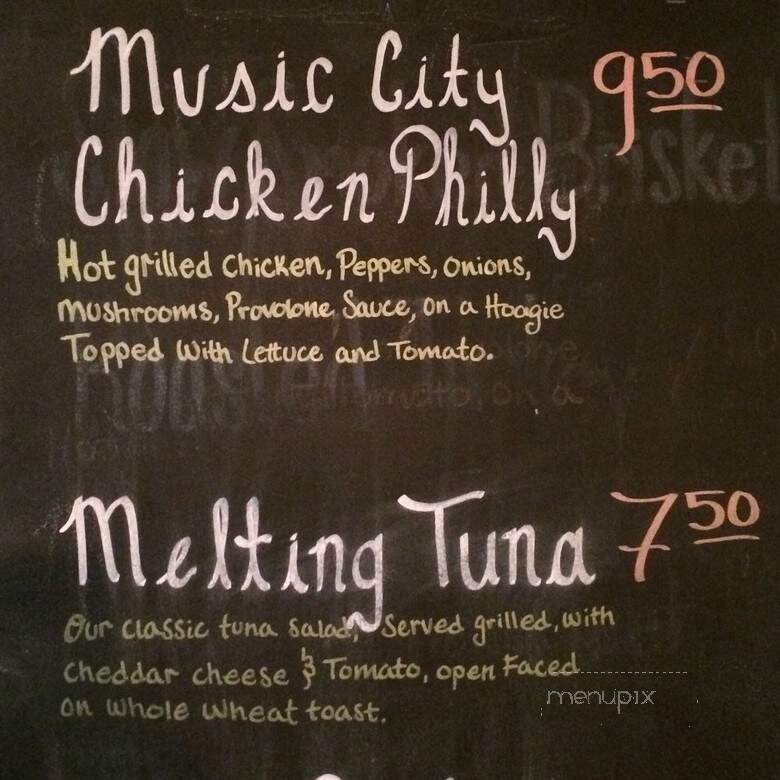 Music City 9 50
Chicken Philly
Hot grilled Chicken, Peppers, Onions,
Mushrooms, Provolone Sauce, on a Hoagie
Topped With Lettuce and Tomato.
Melting Tuna 7 50
Our classic tuna salad, Served grilled, with
cheddar cheese & Tomato, open Faced
on whole wheat toast.
menupix